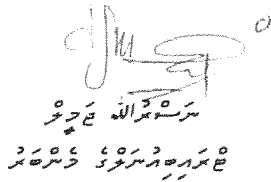 ނަސްރުﷲ ޖަމީލް
ޓްރައިބިއުނަލްގެ މެންބަރު